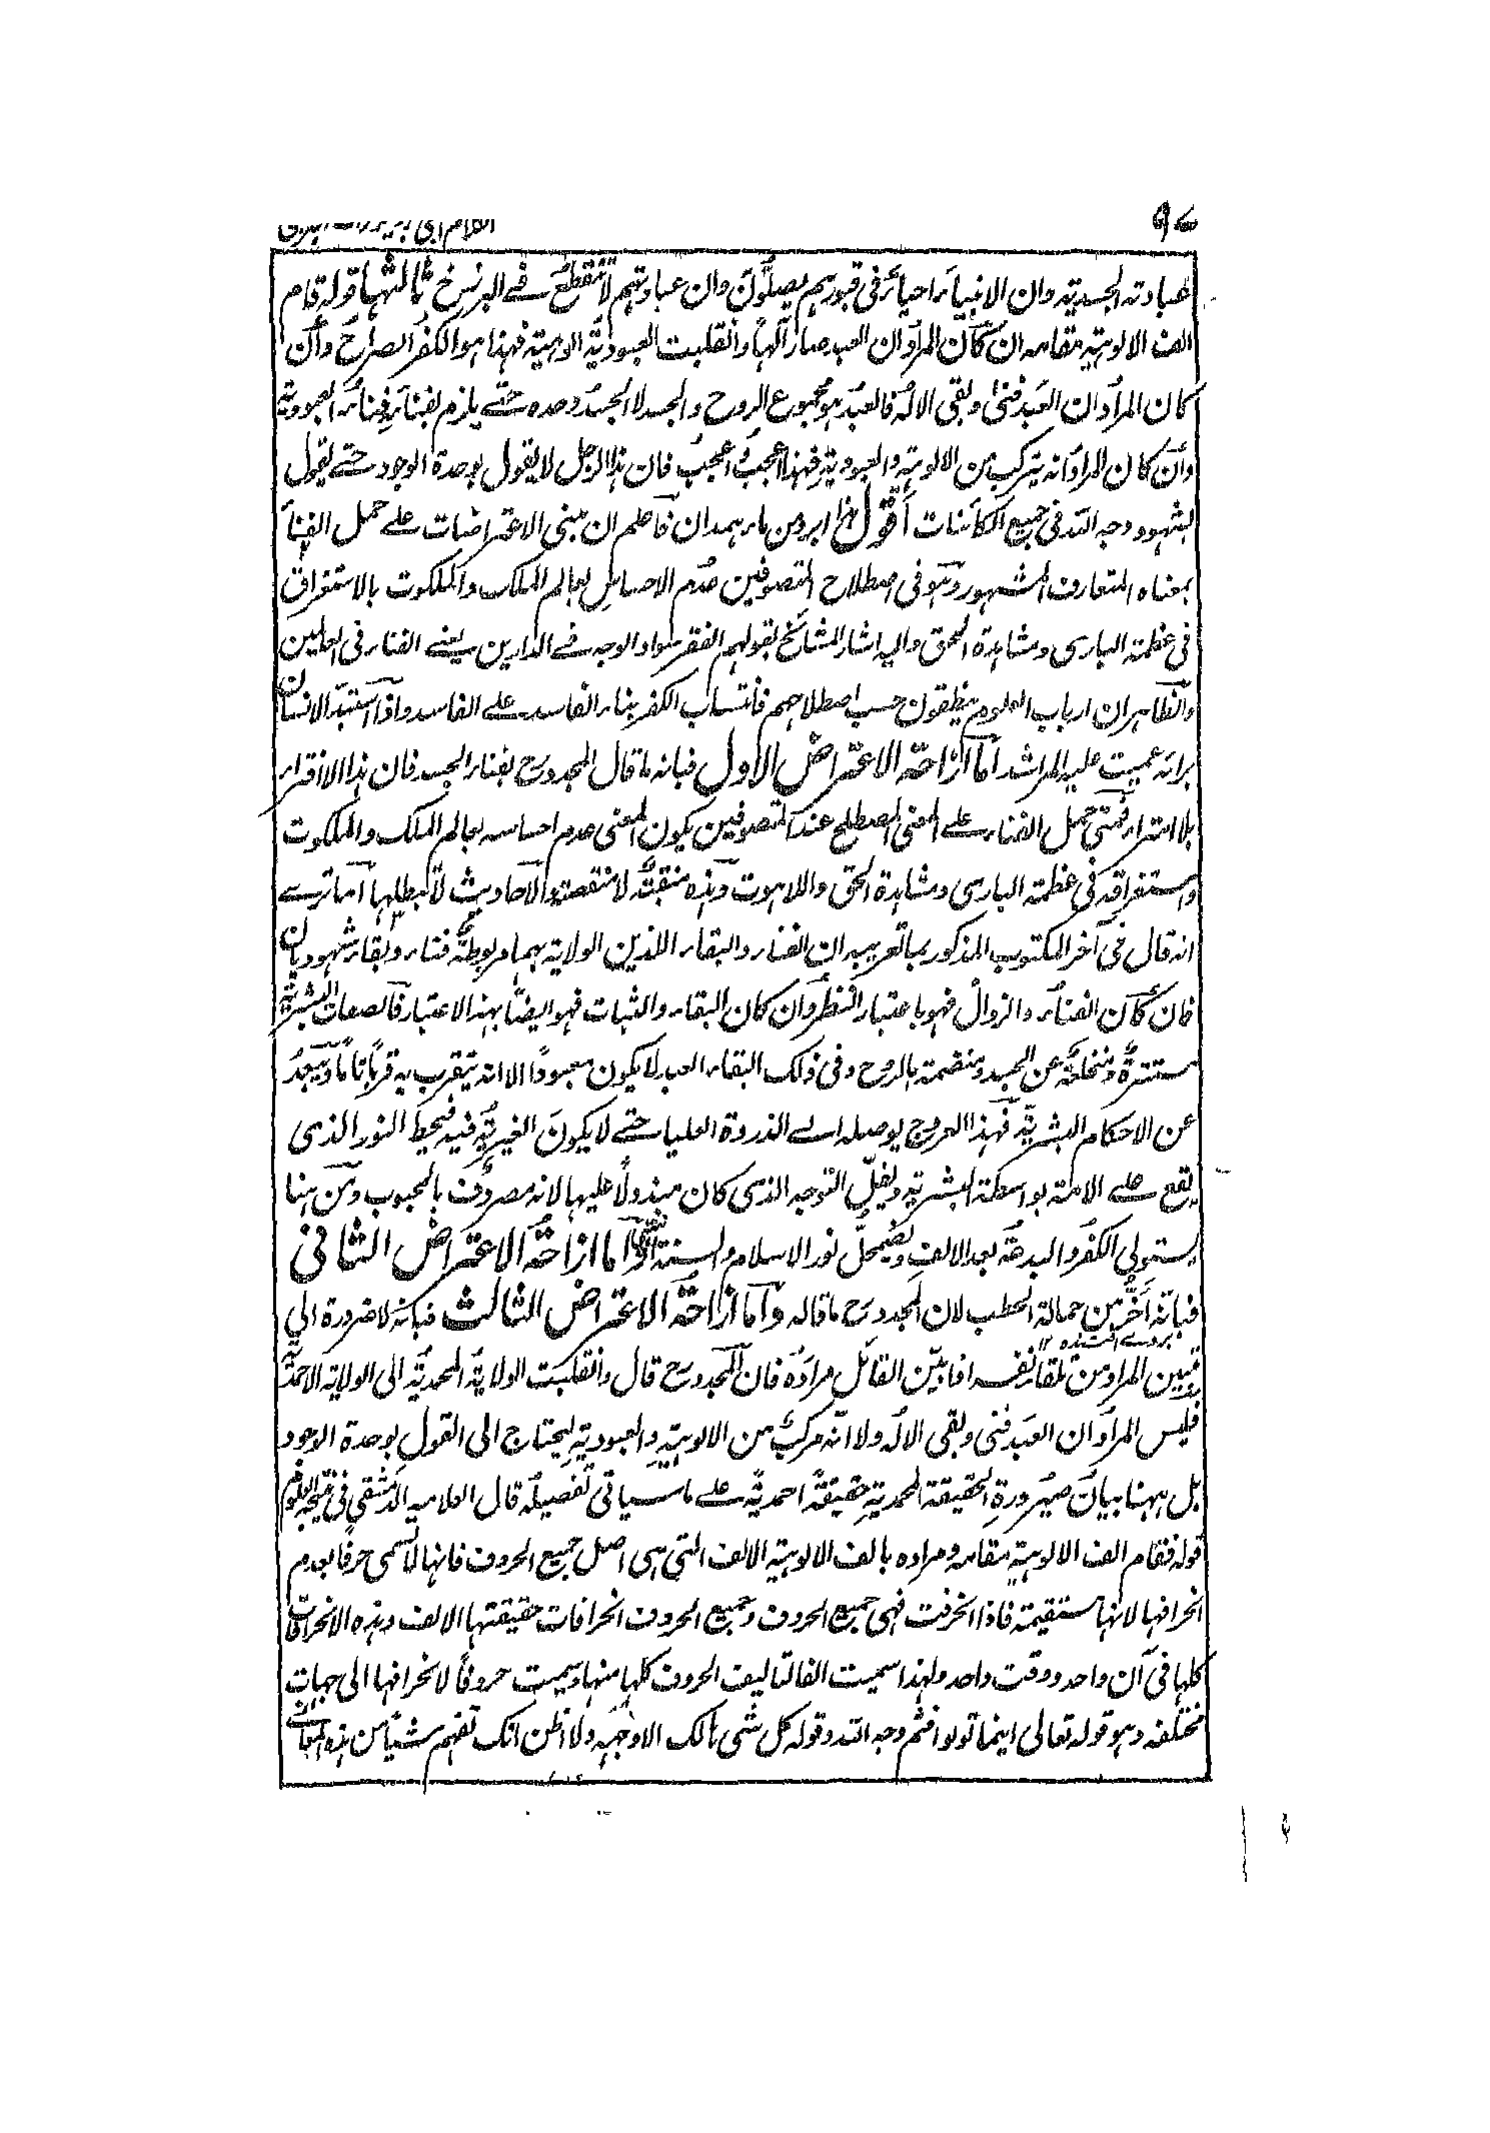 ٩٧
عبادته الجسديته وان الانبياء احياء فى قبورهم يصلّون وان عباداتهم لا تنقطع فے البرزخ ثالثها قوله قام
الف الالوهية مقامه ان كان المراد ان العبد صار آلهاً وانقلبت العبودية الوهية فهذا هو الكفر الصراح وان
كان المراد ان العبد فنىٰ وبقى الالٰه فالعبد هو مجموع الروح والجسد لا الجسد وحده حتے يلزم بفنائه فناء العبودية
وان كان المراد انه يتركب من الالوهية والعبودية فهذا اعجب واعجب فان هذا الرجل لا يقول بوحدة الوجود حتے يقول
بشهود وجه الله فى جميع الكائنات أقول هذا ابرد من مار همدان فاعلم ان مبنى الاعتراضات علے حمل الفناء
بمعناه المتعارف المشهور وهو فى اصطلاح المتصوفين عدم الاحساس بعالم الملك والملكوت بالاستغراق
فى عظمة البارى ومشاهدة الحق واليه اشار المشائخ بقولهم الفقر سواد الوجه فے الدارين يعنے الفناء فى العالمين
والظاهر ان ارباب العلوم ينطقون حسب اصطلاحهم فانتساب الكفر بناء الفاسد علے الفاسد واذا استبد الانسان
برائه عميت عليه المراشد اما ازاحة الاعتراض الاول فبانه ما قال المجدد رح بفناء الجسد فان هذا الا افتراء
بلا امتراء فمتى حمل الفناء علے المعنى المصطلح عند المتصوفين يكون المعنى عدم احساسه بعالم الملك والملكوت
واستغراقه فى عظمة البارى ومشاهدة الحق واللاهوت وهذه منقبة لا منقصة والاحاديث لا تبطلها اما ترے
انه قال فى آخر المكتوب المذكور بما تعريبه ان الفناء والبقاء اللذين الولاية بهما مربوطة فناء وبقاء شهوديان
فان كان الفناء والزوال فهو باعتبار النظر وان كان البقاء والثبات فهو ايضاً بهذا الاعتبار فالصفات البشرية
مستترة ومنخلعة عن الجسد ومنضمة بالروح وفى ذلك البقاء العبد لا يكون معبوداً الا انه يتقرب به قرباً تاماً ويبعد
عن الاحكام البشرية فهذا العروج يوصله الے الذروة العليا حتے لا يكون الغيرية فيه فيحط النور الذى
يقع علے الامة بواسطة البشرية ويقلّ التوجه الذى كان مبذولاً عليها لانه مصروف بالمحبوب ومن هنا
يستولى الكفر والبدعة بعد الالف ويضمحلّ نور الاسلام والسنة واما ازاحة الاعتراض الثانى
فبانه أخّر من حمالة الحطب لان المجدد رح ما قاله واما ازاحة الاعتراض الثالث فبانه لا ضرورة الى
تبيين المراد من تلقاء نفسه اذا بيّن القائل مراده فان المجدد رح قال وانقلبت الولاية المحمدية الى الولاية الاحمدية
فليس المراد ان العبد فنى وبقى الالٰه ولا انه مركب من الالوهية والعبودية ليحتاج الى القول بوحدة الوجود
بل ههنا بيان صيرورة الحقيقة المحمدية حقيقة احمدية علے ما سياتى تفصيله قال العلامه الدمشقى فى نتيجة العلوم
قوله فقام الف الالوهية مقامه ومراده بالف الالوهية الالف التى هى اصل جميع الحروف فانها لا تسمى حرفاً بعدم
انحرافها لانها مستقيمة فاذا انحرفت فهى جميع الحروف وجميع الحروف انحرافات حقيقتها الالف وهذه الانحرافات
كلها فى آن واحد ووقت واحد ولهذا سميت الفاً لتاليف الحروف كلها منها وسميت حروفاً لانحرافها الى جهات
مختلفه وهو قوله تعالى اينما تولوا فثم وجه الله وقوله كل شى هالك الا وجهه ولا اظن انك تفهم شيئاً من هذه المعانے